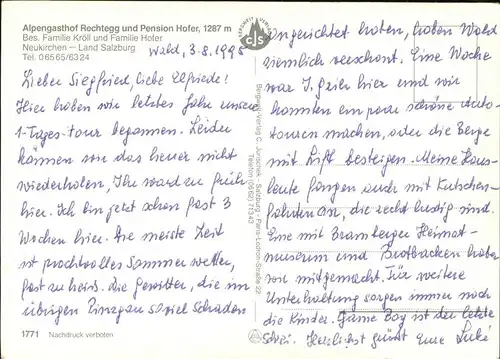 Alpengasthof Rechtegg und Pension Hofer, 1287 m
Bes. Familie Kröll und Familie Hofer
Neukirchen — Land Salzburg
Tel. 0 65 65/63 24
Wald, 3.8.1995
Lieber Siegfried, liebe Elfriede!
Hier haben wir letztes Jahr unsere
1-Tages-Tour begonnen. Leider
können wir das heuer nicht
wiederholen, Ihr ward zu früh
hier. Ich bin jetzt schon fast 3
Wochen hier. Die meiste Zeit
ist prachtvolles Sommerwetter,
fast zu heiss. Die Gewitter, die im
übrigen Pinzgau soviel Schaden
1771 Nachdruck verboten
Bergwelt-Verlag C. Jurischek - Salzburg - Paris-Lodron-Straße 22
CJS
angerichtet haben, haben Wald
ziemlich verschont. Eine Woche
war hier und wir
konnten ein paar schöne Auto-
touren machen, oder die Berge
mit Lift besteigen. Meine Haus-
leute fangen auch mit Kutschen-
fahrten an, die recht lustig sind.
Eine mit Bramberger Heimat-
museum und Brotbacken haben
wir mitgemacht. Für weitere
Unterhaltung sorgen immer noch
die Kinder. Game Boy ist der letzte
Schrei. Herzlichst grüsst Eure